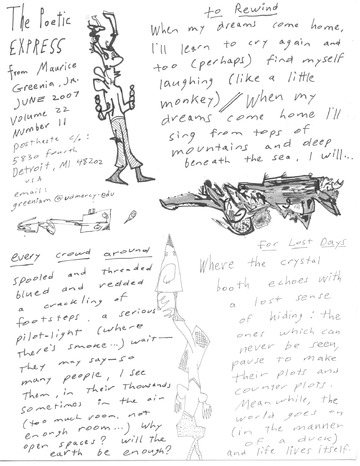 The Poetic
EXPRESS
from Maurice
Greenia, Jr.
JUNE 2007
Volume 22
Number 11
Posthaste c/o:
5830 Fourth
Detroit, MI 48202
USA
email:
greeniam@udmercy.edu
to Rewind
When my dreams come home,
I'll learn to cry again and
too (perhaps) find myself
laughing (like a little
monkey) // When my
dreams come home I'll
sing from tops of
mountains and deep
beneath the sea. I will...
every crowd around
spooled and threaded
blued and redded
a crackling of
footsteps. a serious
pilot-light (where
there's smoke...) wait—
They may say—so
many people, I see
Them, in their Thousands
sometimes in the air
(too much room, not
enough room...) Why
open spaces? will the
earth be enough?
For Lost Days
Where the crystal
booth echoes with
a lost sense
of hiding: the
ones which can
never be seen,
pause to make
their plots and
counter plots.
Meanwhile, the
world goes on
(in the manner
of a duck)
and life lives itself.